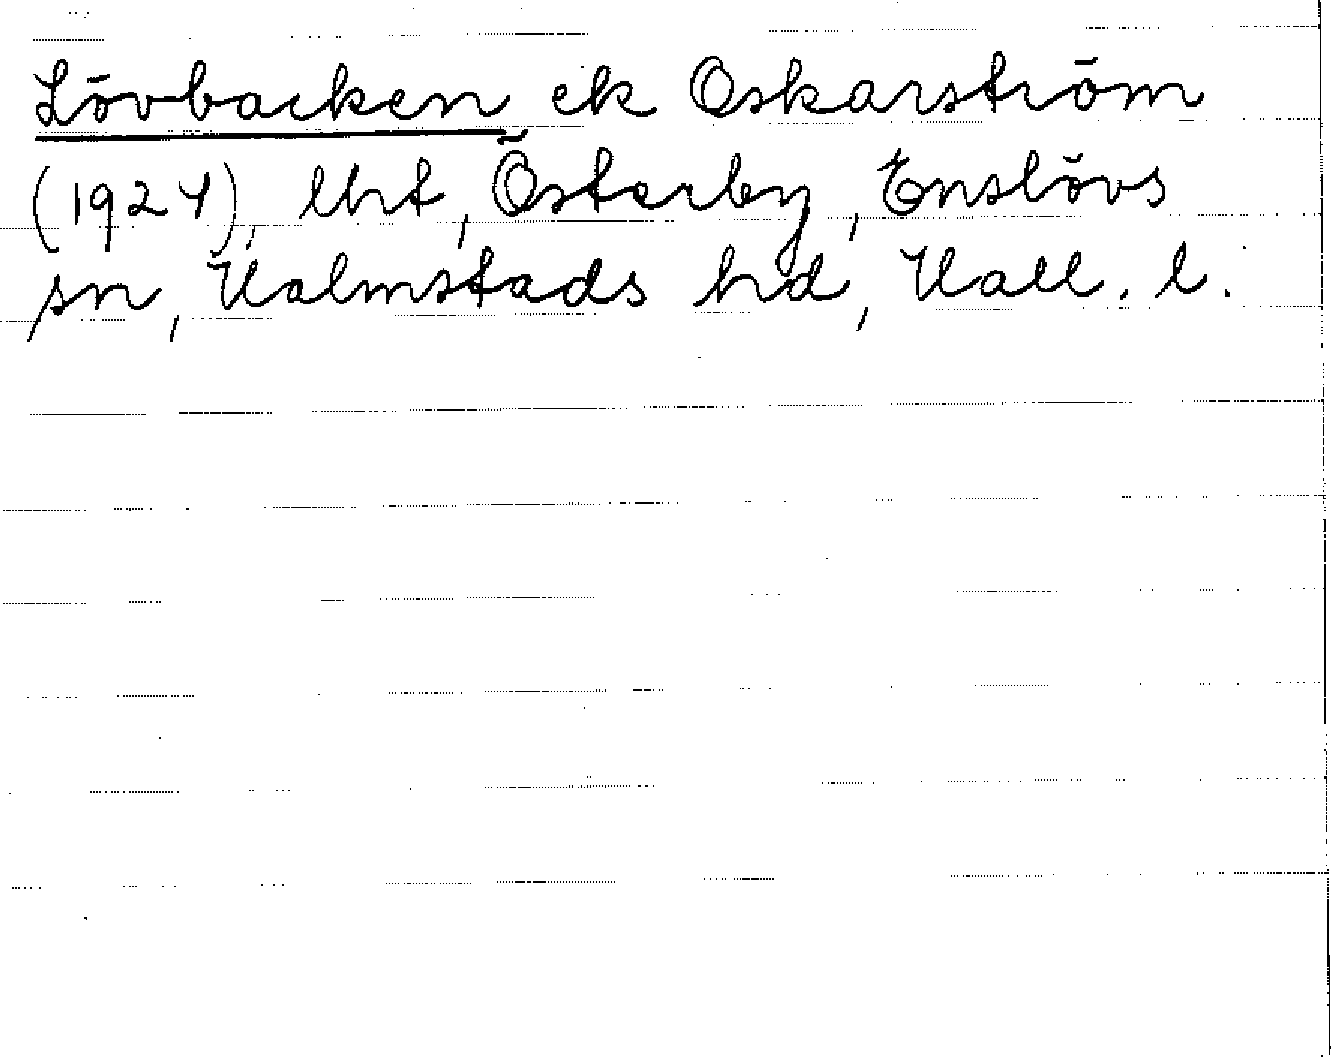 Lövbacken ek Oskarström
(1924), lht, Österby, Enslövs
sn, Halmstads hd, Hall. l.